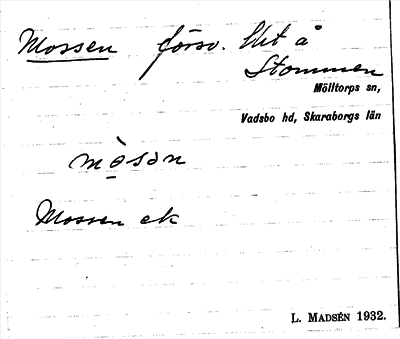 Mossen försv. Lht å
Stommen
Mölltorps sn,
Vadsbo hd, Skaraborgs län
mò̱sən
Mossen ek
L. MADSÉN 1932.